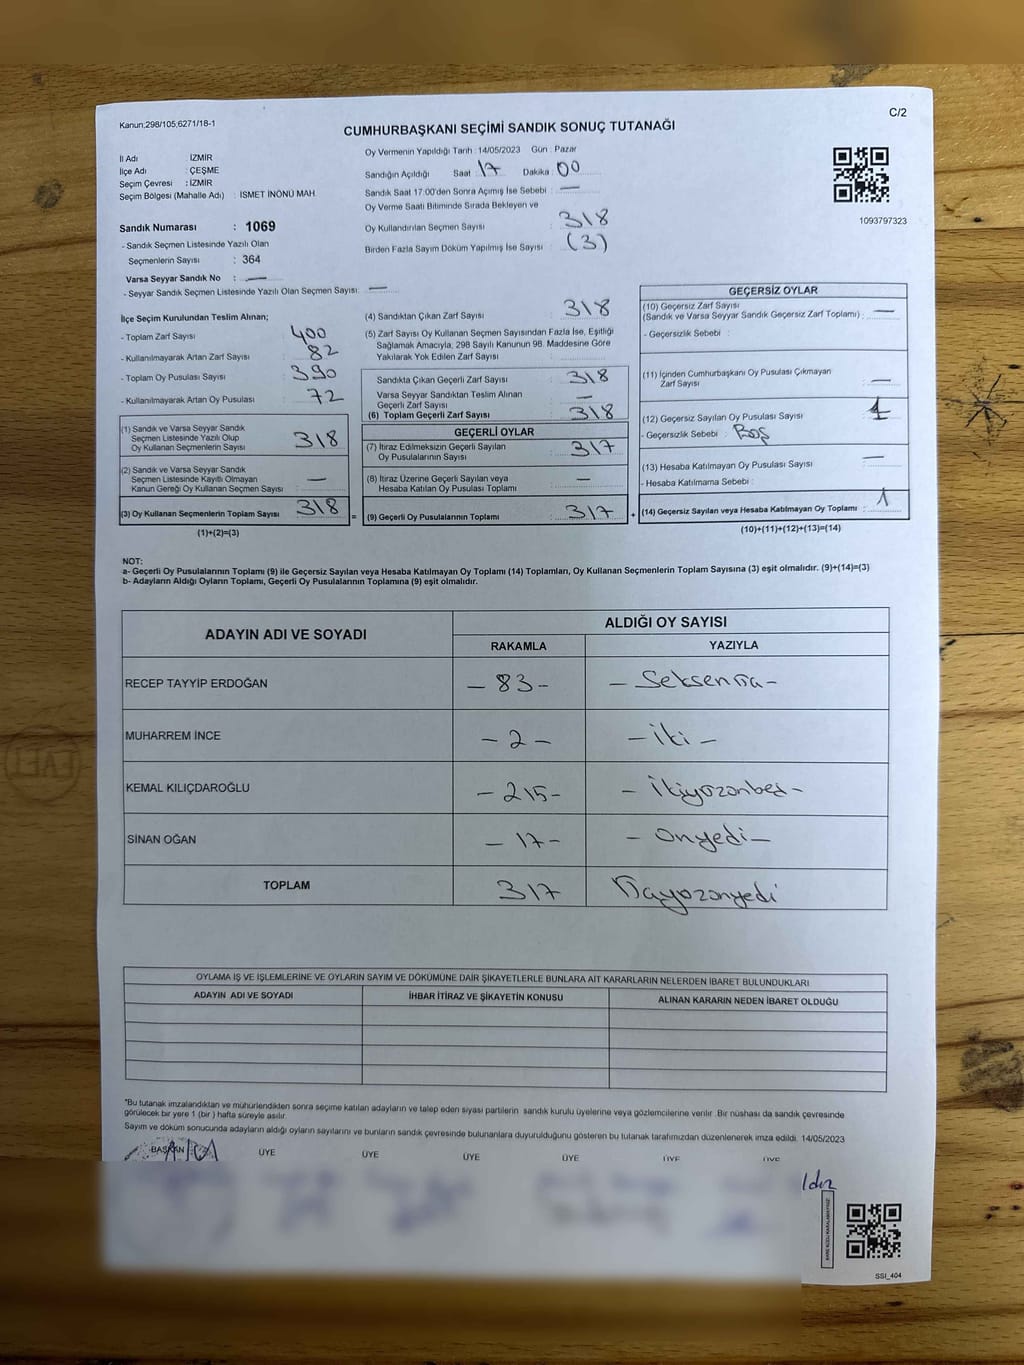 Kanun;298/105,6271/18-1
C/2
CUMHURBAŞKANI SEÇİMİ SANDIK SONUÇ TUTANAĞI
İl Adı İZMİR
İlçe Adı : ÇEŞME
Seçim Çevresi : İZMİR
Seçim Bölgesi (Mahalle Adı) : İSMET İNÖNÜ MAH.
Oy Vermenin Yapıldığı Tarih : 14/05/2023 Gün : Pazar
Sandığın Açıldığı Saat : 17 Dakika : 00
Sandık Saat 17:00'den Sonra Açımış İse Sebebi : —
Oy Verme Saati Bitiminde Sırada Bekleyen ve
Oy Kullandırılan Seçmen Sayısı : 318
Birden Fazla Sayım Döküm Yapılmış İse Sayısı : (3)
1093797323
Sandık Numarası : 1069
- Sandık Seçmen Listesinde Yazılı Olan
Seçmenlerin Sayısı : 364
Varsa Seyyar Sandık No : —
- Seyyar Sandık Seçmen Listesinde Yazılı Olan Seçmen Sayısı: —
İlçe Seçim Kurulundan Teslim Alınan;
- Toplam Zarf Sayısı : 400
- Kullanılmayarak Artan Zarf Sayısı : 82
- Toplam Oy Pusulası Sayısı : 390
- Kullanılmayarak Artan Oy Pusulası : 72
(1) Sandık ve Varsa Seyyar Sandık
Seçmen Listesinde Yazılı Olup
Oy Kullanan Seçmenlerin Sayısı : 318
(2) Sandık ve Varsa Seyyar Sandık
Seçmen Listesinde Kayıtlı Olmayan
Kanun Gereği Oy Kullanan Seçmen Sayısı : —
(3) Oy Kullanan Seçmenlerin Toplam Sayısı : 318 =
(1)+(2)=(3)
(4) Sandıktan Çıkan Zarf Sayısı : 318
(5) Zarf Sayısı Oy Kullanan Seçmen Sayısından Fazla İse, Eşitliği
Sağlamak Amacıyla, 298 Sayılı Kanunun 98. Maddesine Göre
Yakılarak Yok Edilen Zarf Sayısı :
Sandıkta Çıkan Geçerli Zarf Sayısı : 318
Varsa Seyyar Sandıktan Teslim Alınan
Geçerli Zarf Sayısı : —
(6) Toplam Geçerli Zarf Sayısı : 318
GEÇERLİ OYLAR
(7) İtiraz Edilmeksizin Geçerli Sayılan
Oy Pusulalarının Sayısı : 317
(8) İtiraz Üzerine Geçerli Sayılan veya
Hesaba Katılan Oy Pusulası Toplamı : —
(9) Geçerli Oy Pusulalarının Toplamı : 317 +
GEÇERSİZ OYLAR
(10) Geçersiz Zarf Sayısı
(Sandık ve Varsa Seyyar Sandık Geçersiz Zarf Toplamı) : —
- Geçersizlik Sebebi :
(11) İçinden Cumhurbaşkanı Oy Pusulası Çıkmayan
Zarf Sayısı : —
(12) Geçersiz Sayılan Oy Pusulası Sayısı : 1
- Geçersizlik Sebebi : Boş
(13) Hesaba Katılmayan Oy Pusulası Sayısı : —
- Hesaba Katılmama Sebebi :
(14) Geçersiz Sayılan veya Hesaba Katılmayan Oy Toplamı : 1
(10)+(11)+(12)+(13)=(14)
NOT:
a- Geçerli Oy Pusulalarının Toplamı (9) ile Geçersiz Sayılan veya Hesaba Katılmayan Oy Toplamı (14) Toplamları, Oy Kullanan Seçmenlerin Toplam Sayısına (3) eşit olmalıdır. (9)+(14)=(3)
b- Adayların Aldığı Oyların Toplamı, Geçerli Oy Pusulalarının Toplamına (9) eşit olmalıdır.
ADAYIN ADI VE SOYADI ALDIĞI OY SAYISI
RAKAMLA YAZIYLA
RECEP TAYYİP ERDOĞAN – 83 – – Seksenüç –
MUHARREM İNCE – 2 – – iki –
KEMAL KILIÇDAROĞLU – 215 – – İkiyüzonbeş –
SİNAN OĞAN – 17 – – Onyedi –
TOPLAM 317 Üçyüzonyedi
OYLAMA İŞ VE İŞLEMLERİNE VE OYLARIN SAYIM VE DÖKÜMÜNE DAİR ŞİKAYETLERLE BUNLARA AİT KARARLARIN NELERDEN İBARET BULUNDUKLARI
ADAYIN ADI VE SOYADI İHBAR İTİRAZ VE ŞİKAYETİN KONUSU ALINAN KARARIN NEDEN İBARET OLDUĞU
"Bu tutanak imzalandıktan ve mühürlendikten sonra seçime katılan adayların ve talep eden siyasi partilerin sandık kurulu üyelerine veya gözlemcilerine verilir. Bir nüshası da sandık çevresinde
görülecek bir yere 1 (bir) hafta süreyle asılır.
Sayım ve döküm sonucunda adayların aldığı oyların sayılarını ve bunların sandık çevresinde bulunanlara duyurulduğunu gösteren bu tutanak tarafımızdan düzenlenerek imza edildi. 14/05/2023
BAŞKAN ÜYE ÜYE ÜYE ÜYE ÜYE ÜYE
SSİ_404
EVET